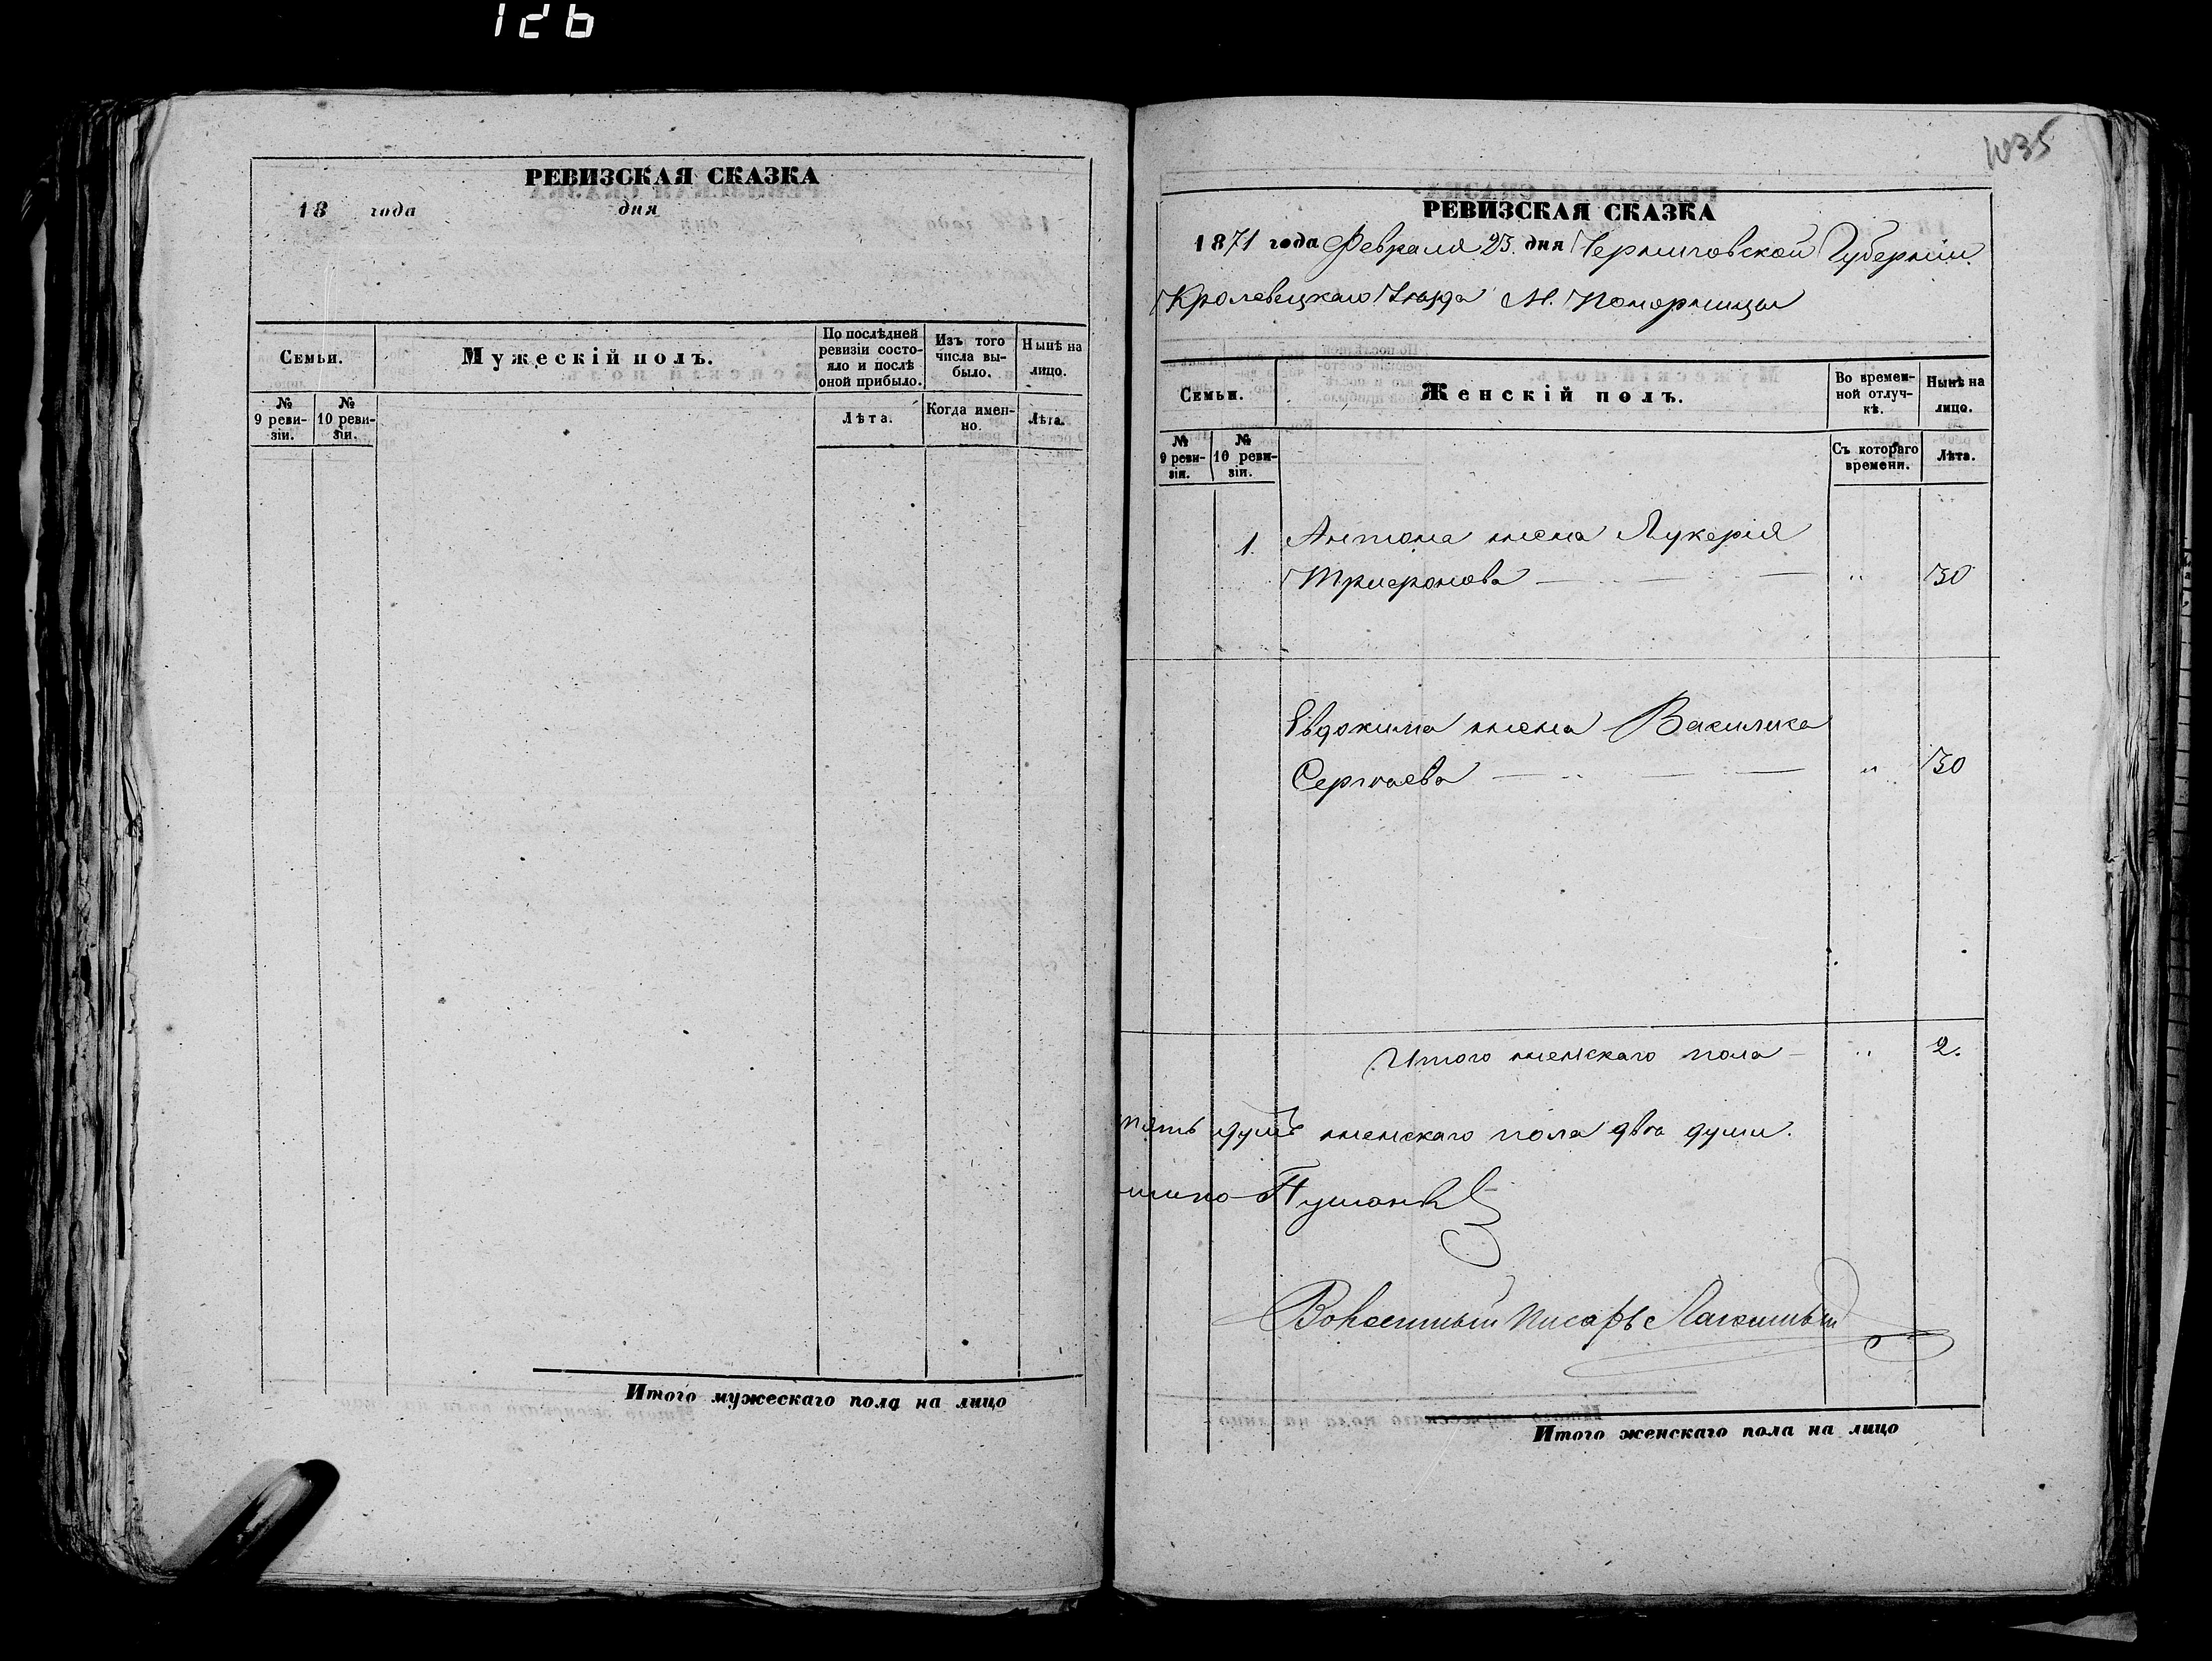 126
РЕВИЗСКАЯ СКАЗКА
18 года дня
Семьи.
Мужескій полъ.
По послѣдней ревизіи состояло и послѣ оной прибыло.
Изъ того числа выбыло.
Нынѣ на лицо.
№ 9 ревизіи.
№ 10 ревизіи.
Лѣта.
Когда именно.
Лѣта.
Итого мужескаго пола на лицо
1035
РЕВИЗСКАЯ СКАЗКА
1871 года Февраля 23. дня Черниговской Губерніи
Кролевецкаго Уѣзда М. Понорницы
Семьи.
Женскій полъ.
Во временной отлучкѣ.
Нынѣ на лицо.
№ 9 ревизіи.
№ 10 ревизіи.
Съ котораго времени.
Лѣта.
1. Антона жена Лукерія
Трифонова — — — " 30
Евдокима жена Василиса
Сергѣева — — — " 30
Итого женскаго пола — " 2.
пять душъ женскаго пола двѣ души.
Волостный Писарь
Итого женскаго пола на лицо